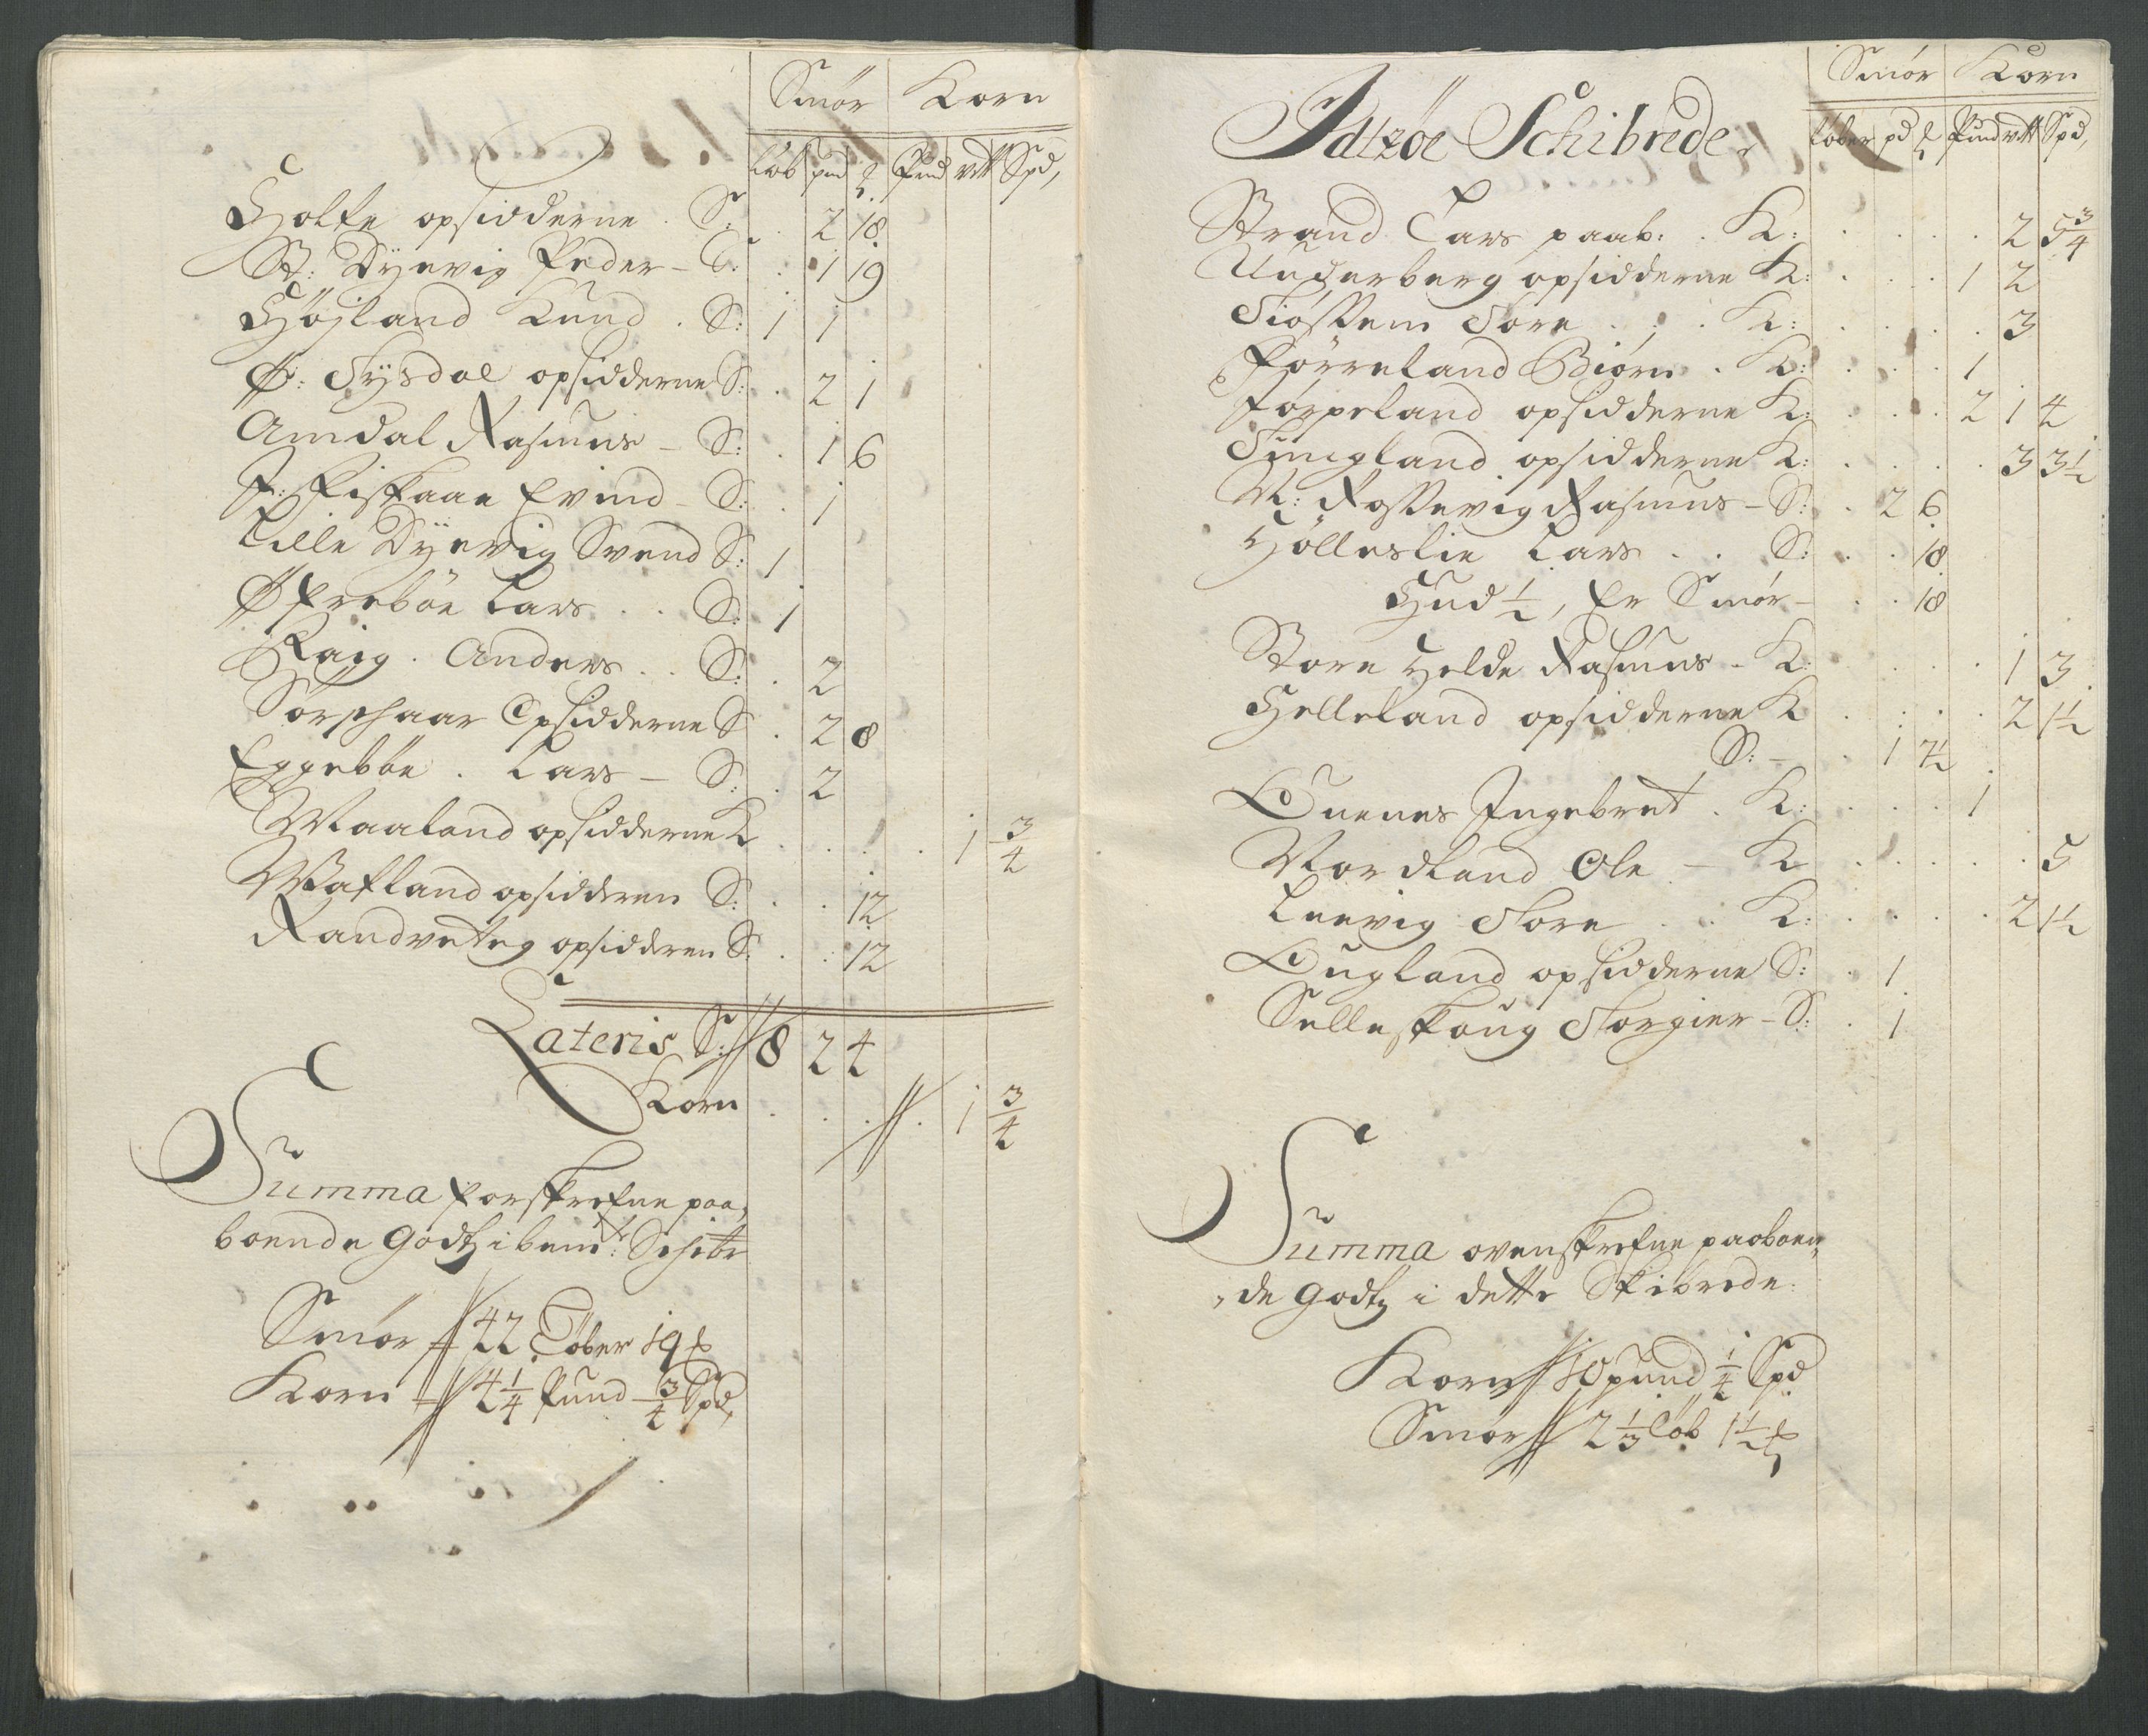 Smör Korn
Løb pund ℔. Pund vtt Spd,
Holte opsidderne . S: . 2 18
St: Dÿevig Peder – S: . 1 19
Högland Knud . S: 1 1
Ø: Sysdal opsidderne S: . 2 1
Amdal Rasmus – S: . 1 6
J: Fiskaae Evind – S: . 1
Lille Dÿevig Svend S: 1
Ø Frebøe Lars . . S: 1
Raig . Anders . . S: . 2
Sørschaar Opsidderne S . 2 8
Eggebøe . Lars – S: . 2
Maaland opsidderne K . . . . 1 3/4
Watland opsidderen S: . . 12
Randveteg opsidderen S: . . 12
Lateris S: 8 2 4
Korn . . . . 1 3/4
Summa forskrefne paa,
boende Godtz i bemt: Schibr
Smør 42 Løber 19 ℔
Korn 4 1/4 Pund 3/4 Spd,
Smør Korn
Idtzöe Schibrede.
Løber pd ℔ Pund vtt Spd,
Strand Lars paab: . K: . . . . . 2 5 3/4
Underberg opsidderne K: . . . . 1 2
Tiøstem Tore . . . K: . . . . . 3
Førreland Biørn . K: . . . . 1
Jørpeland opsidderne K: . . . 2 1 4
Tungland opsidderne K: . . . . . 3 3 1/2
N: Rossevig Rasmus – S: . 2 6
Hølleslie Lars . . S: . . 18
Hud 1/2, Er Smør – . . 18
Store Helde Rasmus – K: . . . . . 1 3
Helleland opsidderne K . . . . . 2 1 1/2
S: – . 1 7 1/2
Buenes Ingebret . K: . . . . 1
Nordland Ole – K . . . . . . 5
Leevig Tore . . K: . . . . . 2 1 1/2
Bugland opsidderne S: . 1
Selleskoug Torgier – S: . 1
Summa ovenskrefne paaboen,
,de Godtz i dette Skibrede:
Korn 10 pund 1/4 Spd
Smør 2 1/3 Løb 1 1/2 ℔